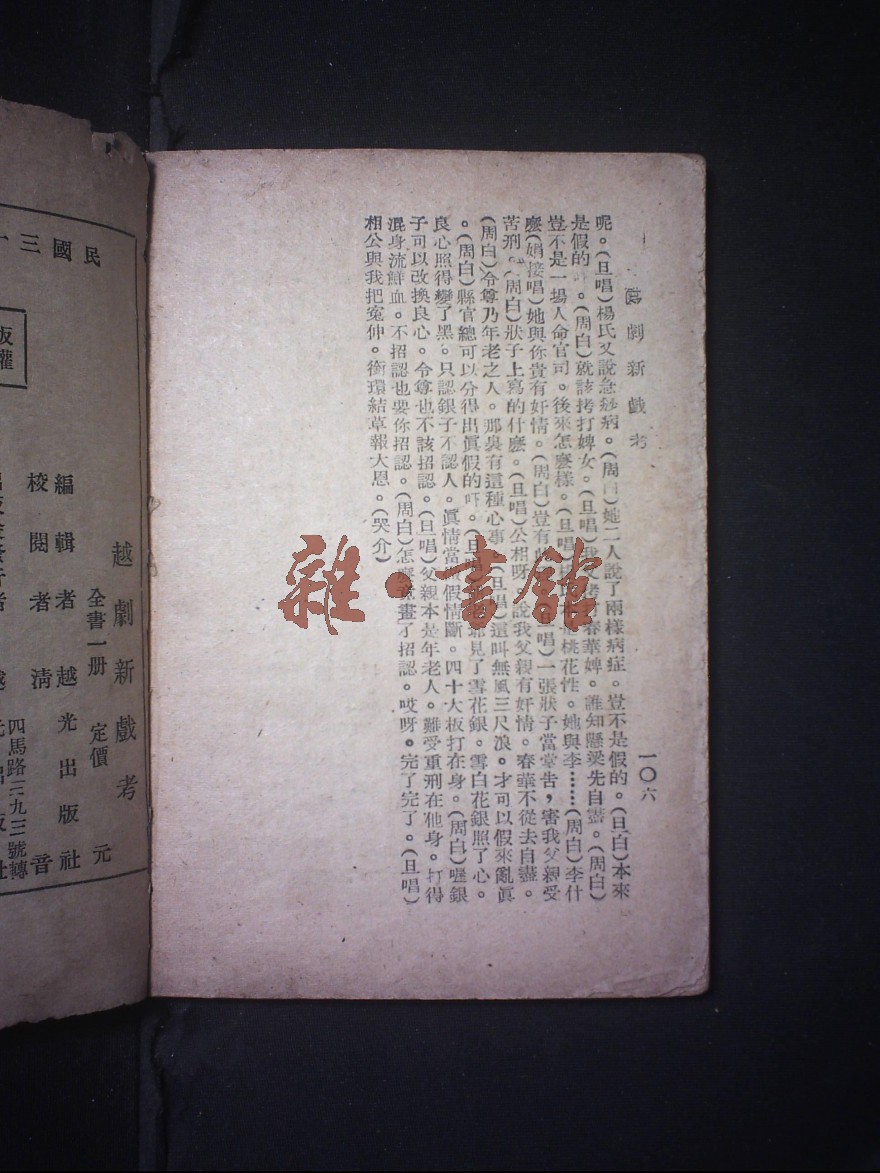 越劇新戲考
一〇六
呢。(旦唱)楊氏又說急痧病。(周白)她二人說了兩樣病症。豈不是假的。(旦白)本來
是假的。(周白)就該拷打婢女。(旦唱)我父拷打春華婢。誰知懸梁先自盡。(周白)
豈不是一場人命官司。後來怎麼樣。(旦唱)楊氏桃花性。她與李……(周白)李什
麼(娟接唱)她與你貴有奸情。(周白)豈有此唱)一張狀子當堂告,害我父親受
苦刑。(周白)狀子上寫的什麼。(旦唱)公相呀說我父親有奸情。春華不從去自盡。
(周白)令尊乃年老之人。那裏有這種心事(旦唱)這叫無風三尺浪。才可以假來亂眞
。(周白)縣官總可以分得出眞假的吓。(旦唱爺見了雪花銀。雪白花銀照了心。
良心照得變了黑。只認銀子不認人。眞情當做假情斷。四十大板打在身。(周白)喔銀
子可以改換良心。令尊也不該招認。(旦唱)父親本是年老人。難受重刑在他身。打得
混身流鮮血。不招認也要你招認。(周白)怎麼竟畫了招認。哎呀。完了完了。(旦唱)
相公與我把寃伸。銜環結草報大恩。(哭介)
雜·書館
民國三十
版權
越劇新戲考
全書一册 定價 元
編輯者 越光出版社
校閱者 淸音
四馬路三九三號轉